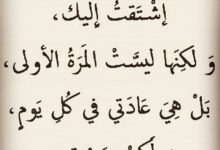 إشْتَقتُ إليكَ،
وَ لَكِنَها ليسَّتْ المَرَةُ الأولى،
بَلْ هِيَ عَادَتي في كُلِ يَومٍ،